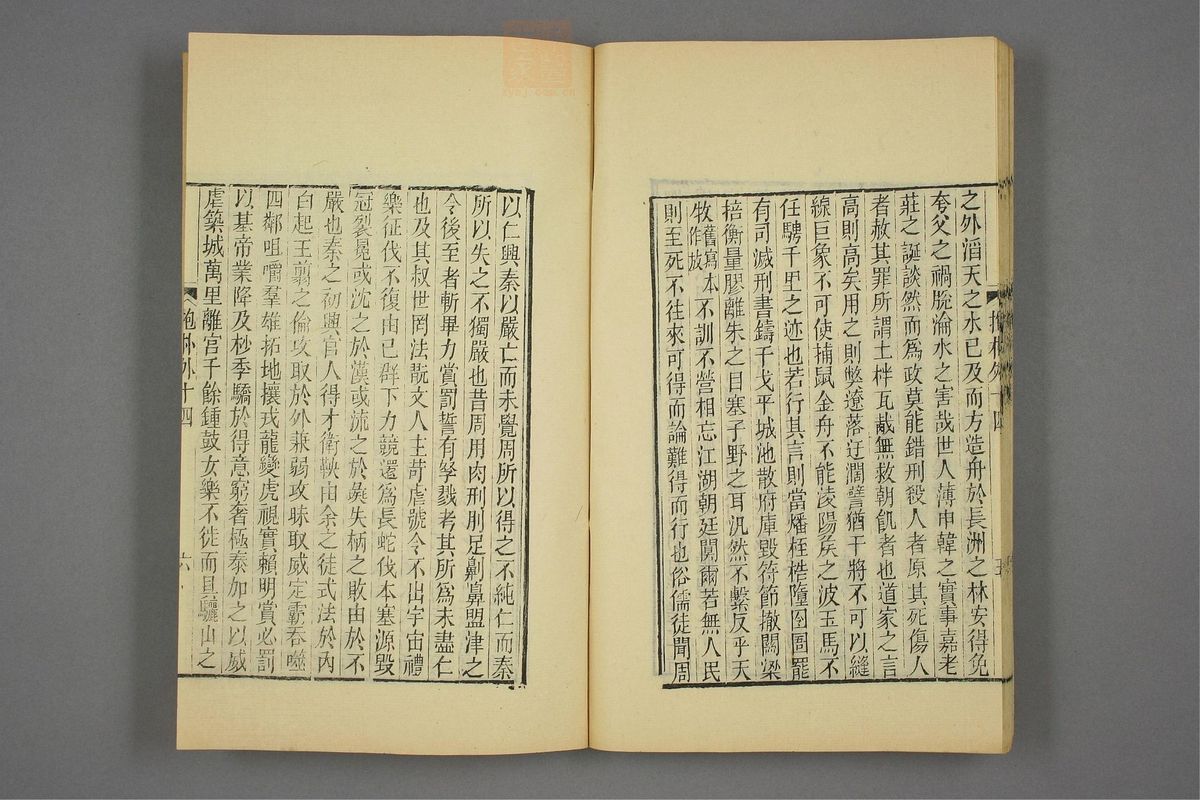 之外滔天之水已及而方造舟於長洲之林安得免
夸父之禍脫淪水之害哉世人薄申韓之實事嘉老
莊之誕談然而爲政莫能錯刑殺人者原其死傷人
者赦其罪所謂土柈瓦胾無救朝飢者也道家之言
高則高矣用之則弊遼落迂闊譬猶干將不可以縫
線巨象不可使捕鼠金舟不能淩陽侯之波玉馬不
任騁千里之迹也若行其言則當燔桎梏墮囹圄罷
有司滅刑書鑄干戈平城池散府庫毀符節撤關梁
掊衡量膠離朱之目塞子野之耳汎然不繫反乎天
牧舊寫本作放不訓不營相忘江湖朝廷闃爾若無人民
則至死不往來可得而論難得而行也俗儒徒聞周
抱朴外十四
五
以仁興秦以嚴亡而未覺周所以得之不純仁而秦
所以失之不獨嚴也昔周用肉刑刖足劓鼻盟津之
令後至者斬畢力賞罰誓有孥戮考其所爲未盡仁
也及其叔世罔法翫文人主苛虐號令不出宇宙禮
樂征伐不復由已群下力競還爲長蛇伐本塞源毀
冠裂冕或沈之於漢或流之於彘失柄之敗由於不
嚴也秦之初興官人得才衛鞅由余之徒式法於內
白起王翦之倫攻取於外兼弱攻昧取威定霸吞噬
四鄰咀嚼羣雄拓地攘戎龍變虎視實賴明賞必罰
以基帝業降及杪季驕於得意窮奢極泰加之以威
虐築城萬里離宮千餘鍾鼓女樂不徙而具驪山之
抱朴外十四
六